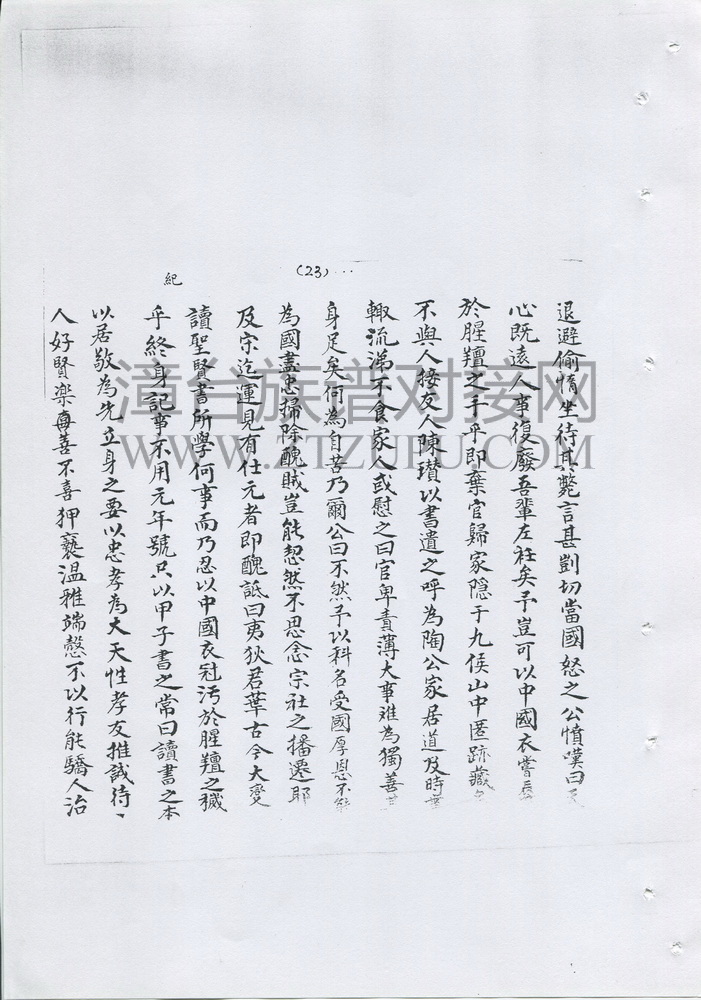 (23)...
紀
退避偷惰坐待其斃言甚剴切當國怒之公憤嘆曰
心既遠人事復廢吾輩左衽矣予豈可以中國衣嘗
於腥羶之手乎即棄官歸家隱于九侯山中匿跡藏
不與人接友人陳瓚以書遺之呼為陶公家居道及時
輙流涕不食家人或慰之曰官卑責薄大事难為獨善
身足矣何為自苦乃爾公曰不然予以科名受國厚恩不能
為國盡忠掃除醜賊豈能恝然不思念宗社之播遷耶
及宋迄運見有仕元者即醜詆曰夷狄君華古今大变
讀聖賢書所學何事而乃忍以中國衣冠污於腥羶之穢
乎終身記事不用元年號只以甲子書之常曰讀書之本
以居敬為先立身之要以忠孝為大天性孝友推誠待、
人好賢楽善不喜狎褻温雅端慤不以行能驕人治
漳台族谱对接网
WWW.ZTZUPU.COM